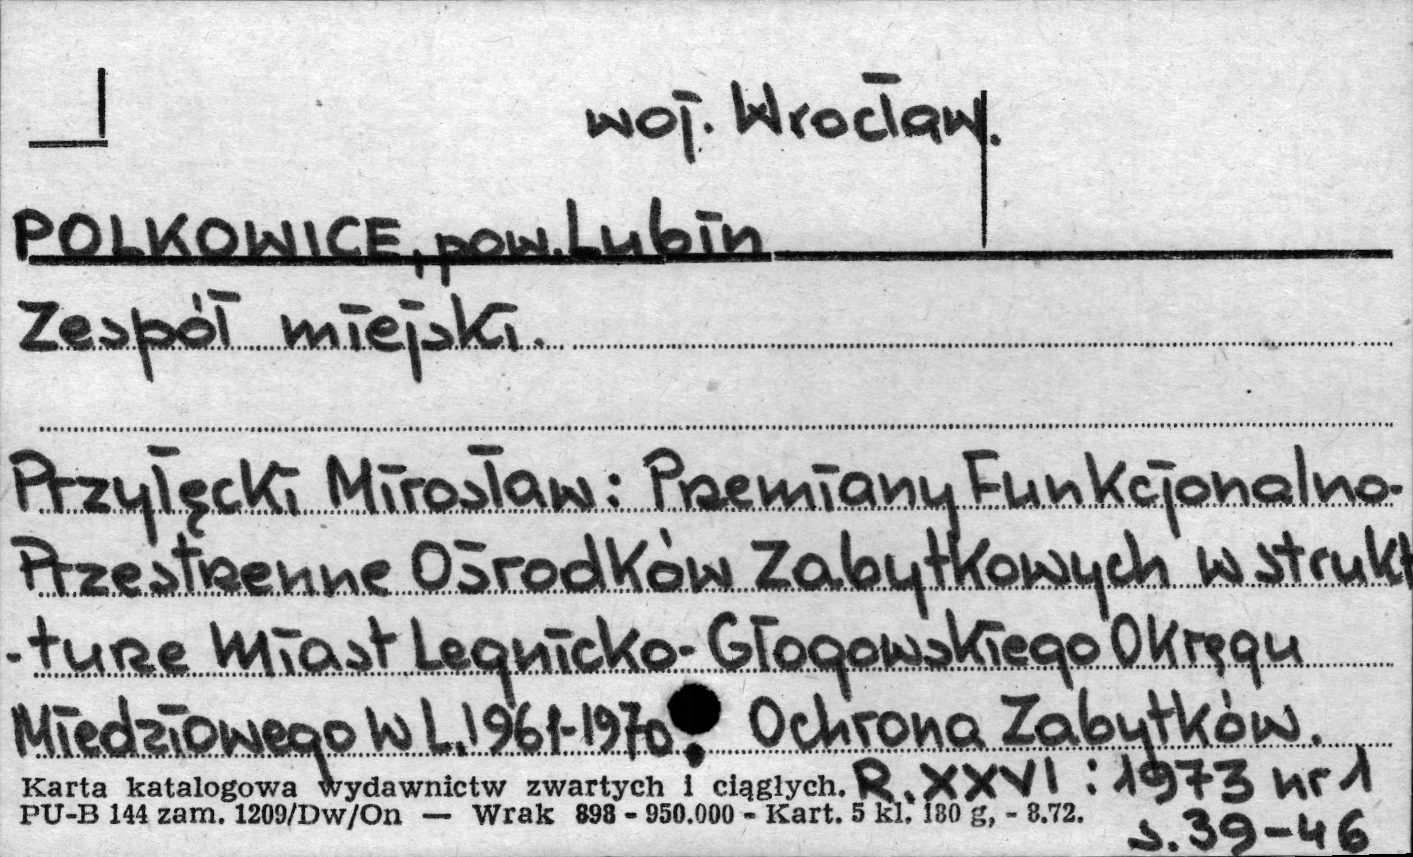 woj. Wrocław.
POLKOWICE, pow. Lubin
Zespół miejski.
Przyłęcki Mirosław: Przemiany Funkcjonalno-
Przestrzenne Ośrodków Zabytkowych w strukt
-turze Miast Legnicko-Głogowskiego Okręgu
Miedziowego w L. 1961-1970. Ochrona Zabytków.
Karta katalogowa wydawnictw zwartych i ciągłych. R. XXVI : 1973 nr 1
PU-B 144 zam. 1209/Dw/On — Wrak 898 - 950.000 - Kart. 5 kl. 180 g, - 8.72.
s. 39-46